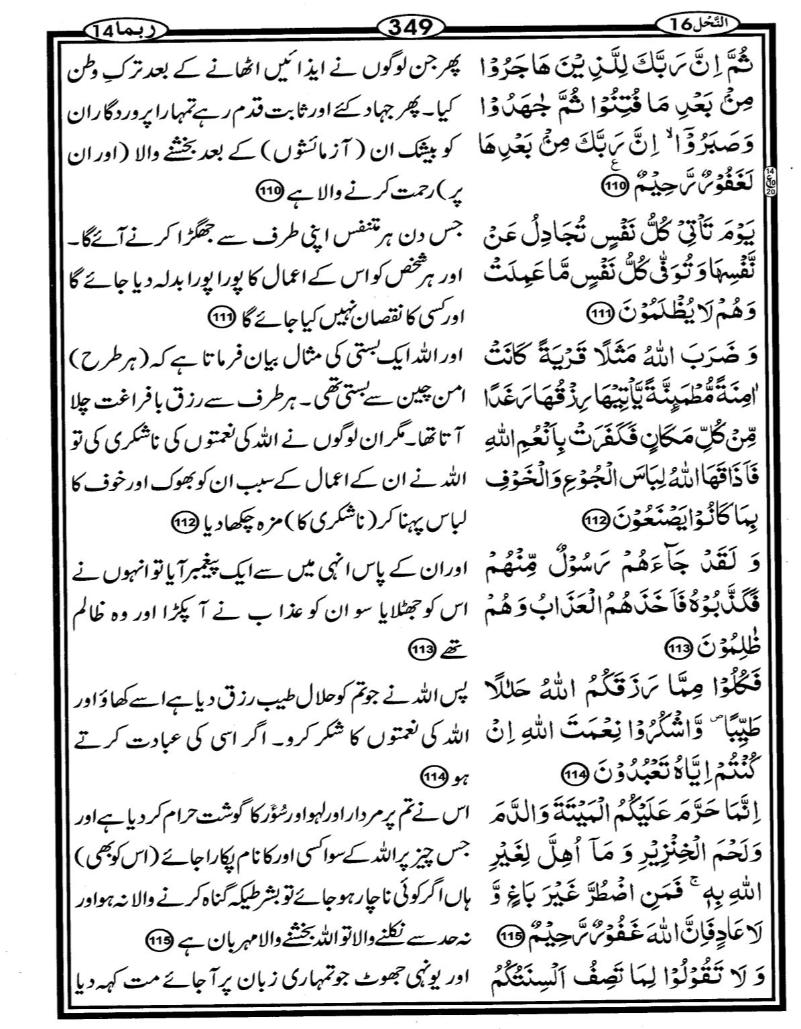 النَّحْل 16
349
ربما 14
ثُمَّ اِنَّ رَبَّكَ لِلَّذِيْنَ هَاجَرُوْا
مِنْۢ بَعْدِ مَا فُتِنُوْا ثُمَّ جٰهَدُوْا
وَصَبَرُوْۤا ۙ اِنَّ رَبَّكَ مِنْۢ بَعْدِهَا
لَغَفُوْرٌ رَّحِيْمٌ ۧ 110
يَوْمَ تَاْتِيْ كُلُّ نَفْسٍ تُجَادِلُ عَنْ
نَّفْسِهَا وَتُوَفّٰى كُلُّ نَفْسٍ مَّا عَمِلَتْ
وَهُمْ لَا يُظْلَمُوْنَ 111
وَ ضَرَبَ اللّٰهُ مَثَلًا قَرْيَةً كَانَتْ
اٰمِنَةً مُّطْمَىِٕنَّةً يَّاْتِيْهَا رِزْقُهَا رَغَدًا
مِّنْ كُلِّ مَكَانٍ فَكَفَرَتْ بِاَنْعُمِ اللّٰهِ
فَاَذَاقَهَا اللّٰهُ لِبَاسَ الْجُوْعِ وَالْخَوْفِ
بِمَا كَانُوْا يَصْنَعُوْنَ 112
وَ لَقَدْ جَآءَهُمْ رَسُوْلٌ مِّنْهُمْ
فَكَذَّبُوْهُ فَاَخَذَهُمُ الْعَذَابُ وَهُمْ
ظٰلِمُوْنَ 113
فَكُلُوْا مِمَّا رَزَقَكُمُ اللّٰهُ حَلٰلًا
طَيِّبًا ۪ وَّاشْكُرُوْا نِعْمَتَ اللّٰهِ اِنْ
كُنْتُمْ اِيَّاهُ تَعْبُدُوْنَ 114
اِنَّمَا حَرَّمَ عَلَيْكُمُ الْمَيْتَةَ وَالدَّمَ
وَلَحْمَ الْخِنْزِيْرِ وَ مَاۤ اُهِلَّ لِغَيْرِ
اللّٰهِ بِهٖ ۚ فَمَنِ اضْطُرَّ غَيْرَ بَاغٍ وَّ
لَا عَادٍ فَاِنَّ اللّٰهَ غَفُوْرٌ رَّحِيْمٌ 115
وَ لَا تَقُوْلُوْا لِمَا تَصِفُ اَلْسِنَتُكُمُ
پھر جن لوگوں نے ایذائیں اٹھانے کے بعد ترک وطن
کیا۔ پھر جہاد کئے اور ثابت قدم رہے تمہارا پروردگار ان
کو بیشک ان (آزمائشوں) کے بعد بخشنے والا (اور ان
پر) رحمت کرنے والا ہے 110
جس دن ہر متنفس اپنی طرف سے جھگڑا کرنے آئے گا۔
اور ہر شخص کو اس کے اعمال کا پورا پورا بدلہ دیا جائے گا
اور کسی کا نقصان نہیں کیا جائے گا 111
اور اللہ ایک بستی کی مثال بیان فرماتا ہے کہ (ہر طرح)
امن چین سے بستی تھی۔ ہر طرف سے رزق با فراغت چلا
آتا تھا۔ مگر ان لوگوں نے اللہ کی نعمتوں کی ناشکری کی تو
اللہ نے ان کے اعمال کے سبب ان کو بھوک اور خوف کا
لباس پہنا کر (ناشکری کا) مزہ چکھا دیا 112
اور ان کے پاس انہی میں سے ایک پیغمبر آیا تو انہوں نے
اس کو جھٹلایا سو ان کو عذاب نے آ پکڑا اور وہ ظالم
تھے 113
پس اللہ نے جو تم کو حلال طیب رزق دیا ہے اسے کھاؤ اور
اللہ کی نعمتوں کا شکر کرو۔ اگر اسی کی عبادت کرتے
ہو 114
اس نے تم پر مردار اور لہو اور سُؤر کا گوشت حرام کر دیا ہے اور
جس چیز پر اللہ کے سوا کسی اور کا نام پکارا جائے (اس کو بھی)
ہاں اگر کوئی ناچار ہو جائے تو بشرطیکہ گناہ کرنے والا نہ ہو اور
نہ حد سے نکلنے والا تو اللہ بخشنے والا مہربان ہے 115
اور یونہی جھوٹ جو تمہاری زبان پر آ جائے مت کہہ دیا